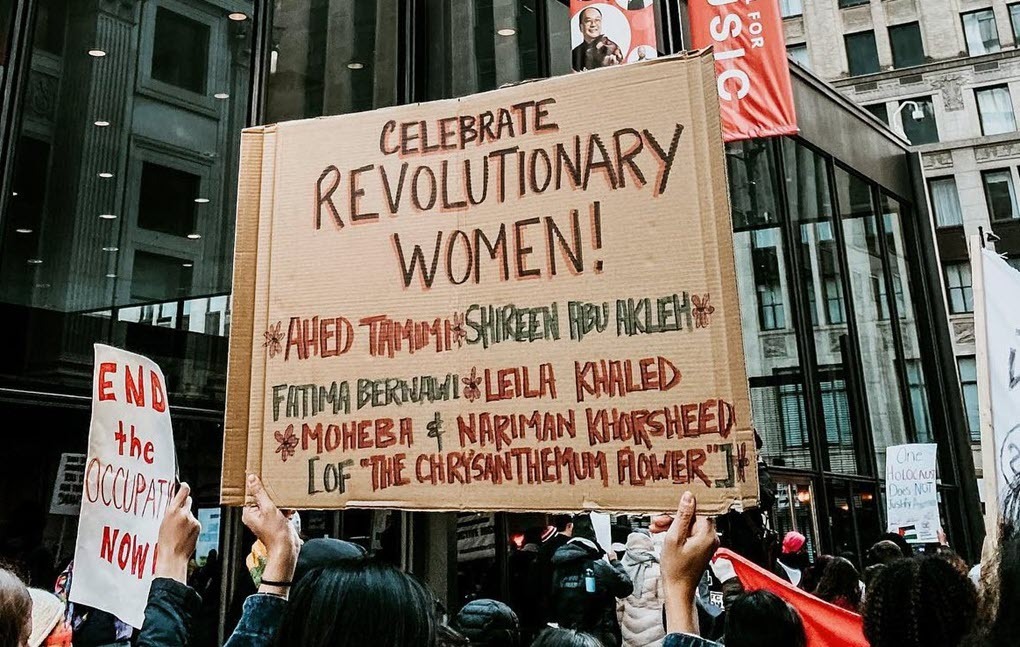 FOR
USIC
CELEBRATE
REVOLUTIONARY
WOMEN!
AHED TAMIMI SHIREEN ABU AKLEH
FATIMA BERNAWI LEILA KHALED
MOHEBA & NARIMAN KHORSHEED
[OF "THE CHRYSANTHEMUM FLOWER"]
END
the
OCCUPAT
NOW!
One
HOLOCAUST
Does NOT
Justify